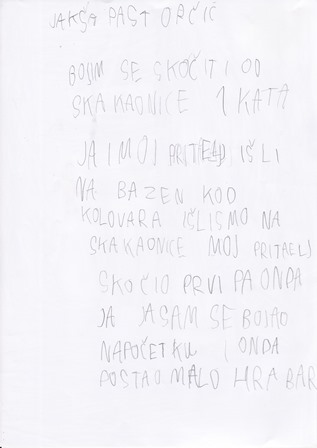 JAKŠA PASTORČIĆ
BOJIM SE SKOČITI OD
SKAKAONICE 1 KATA
JA I MOJ PRITELJ IŠLI
NA BAZEN KOD
KOLOVARA IŠLISMO NA
SKAKAONICE MOJ PRITAELJ
SKOČIO PRVI PA ONDA
JA JASAM SE BOJAO
NAPOČETKU I ONDA
POSTAO MALO HRABAR